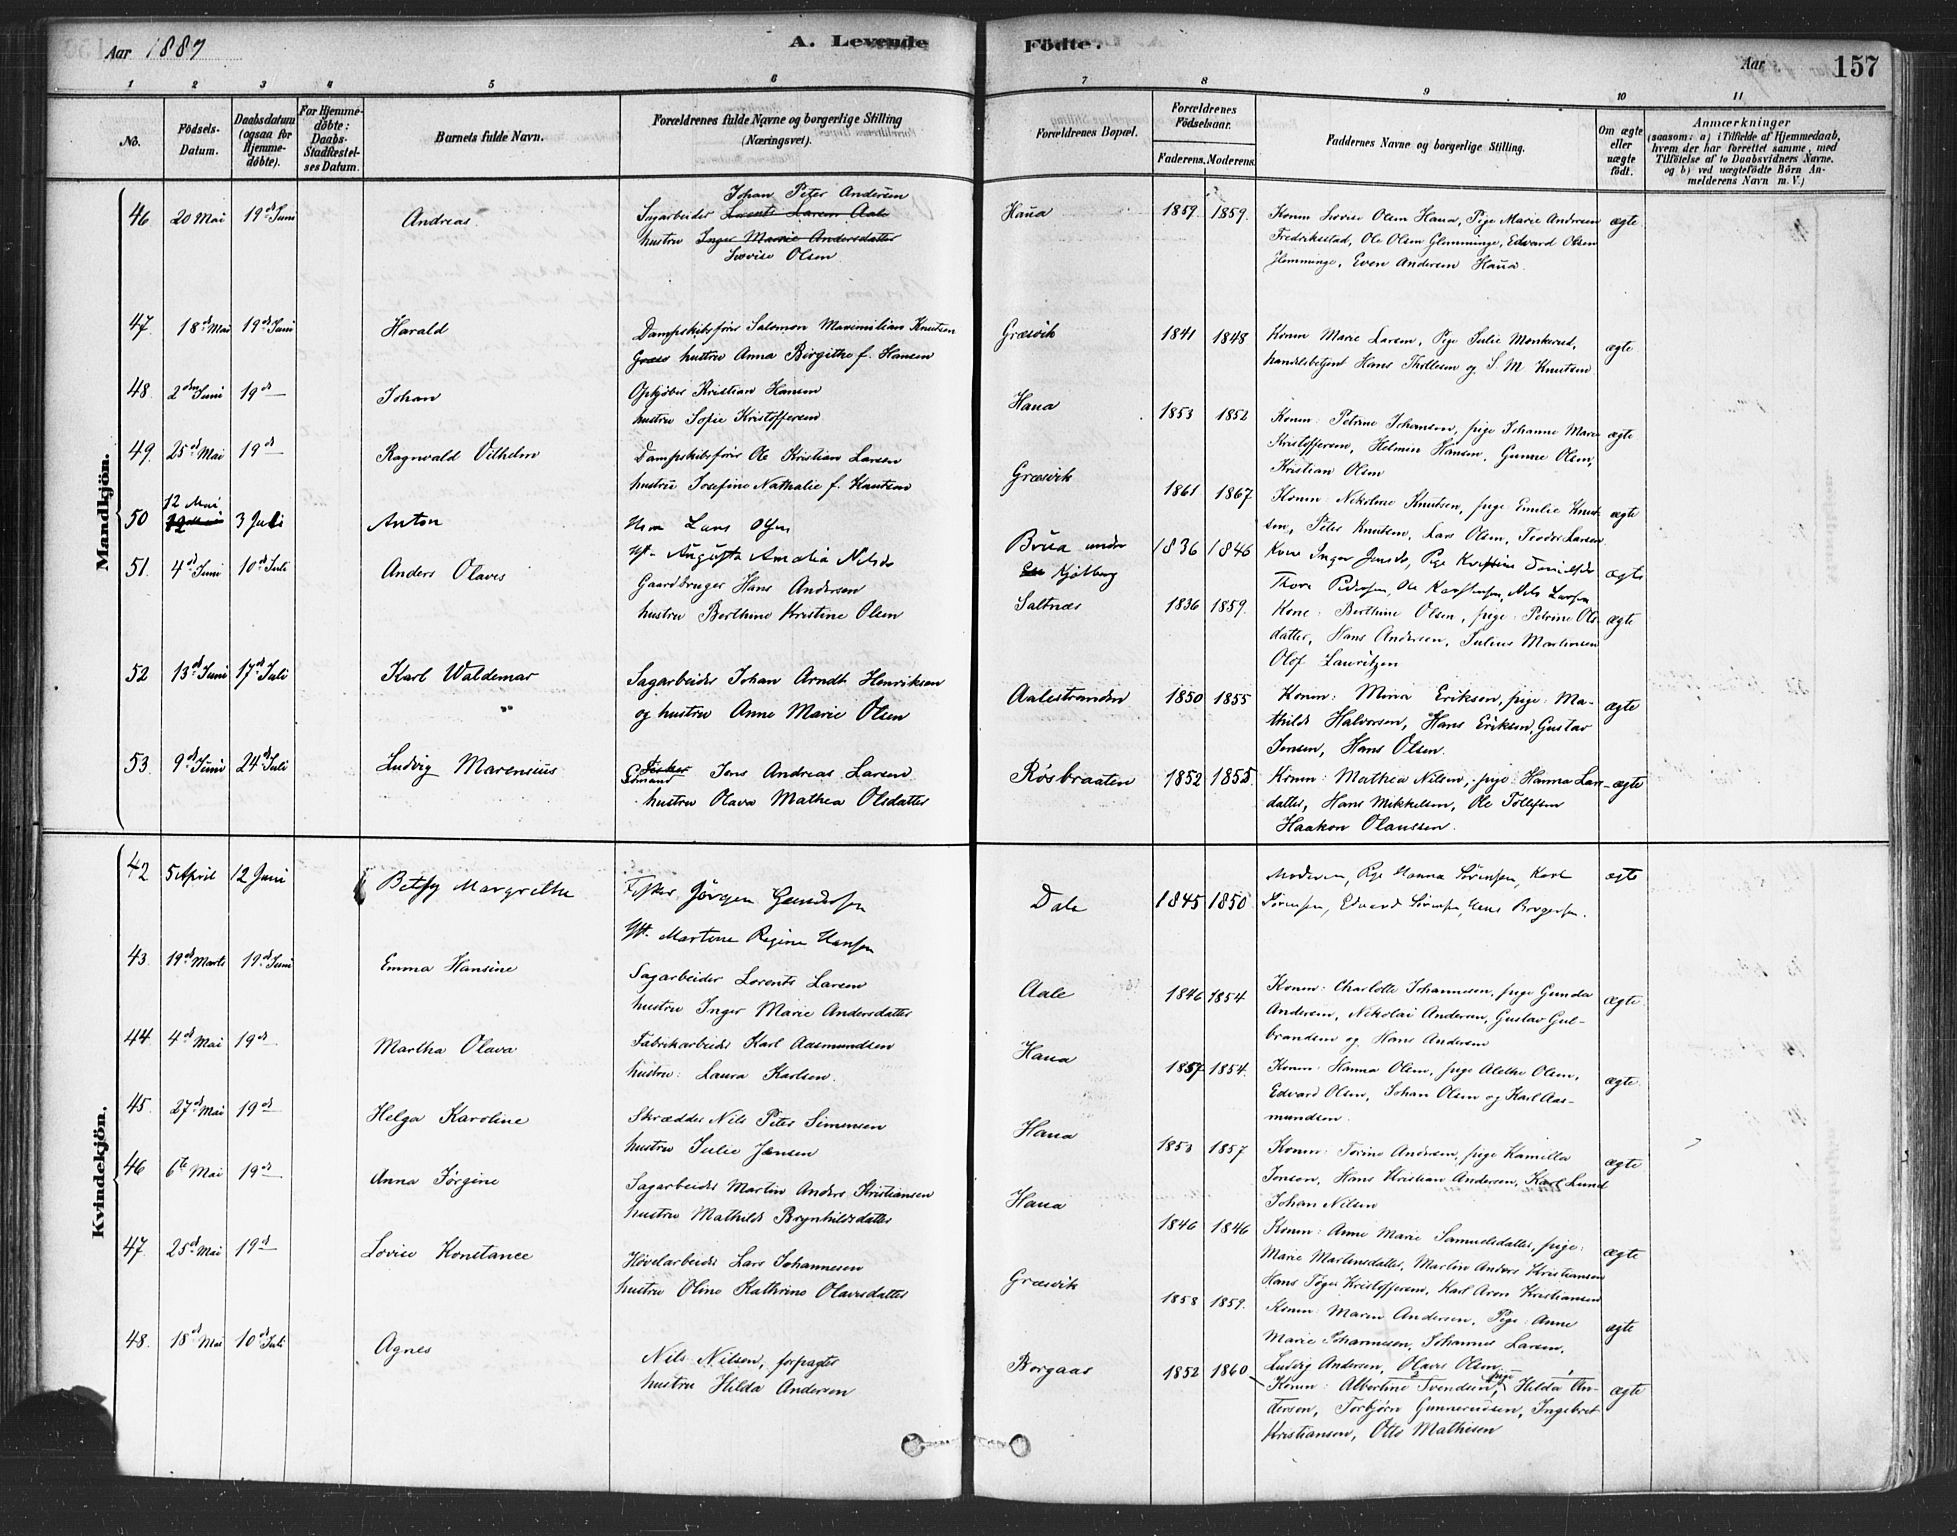 Aar 1887
A. Levende Födte.
Aar 157
1 2 3 4 5 6 7 8 9 10 11
No.
Födsels-Datum.
Daabsdatum (ogsaa for Hjemme-döbte).
For Hjemme-döbte: Daabs-Stadfæstel-ses Datum.
Barnets fulde Navn.
Forældrenes fulde Navne og borgerlige Stilling (Næringsvei).
Forældrenes Bopæl.
Forældrenes Födselsaar.
Faderens. Moderens.
Faddernes Navne og borgerlige Stilling.
Om ægte eller uægte födt.
Anmærkninger (saasom: a) i Tilfælde af Hjemmedaab, hvem der har forrettet samme, med Tilföielse af to Daabsvidners Navne, og b) ved uægtefödte Börn An-melderens Navn m. V.)
Mandkjön.
46 20 Mai 19de Juni Andreas Johan Peter Andersen
Sagarbeider Lorents Larsen Aale
hustru Inger Marie Andersdatter
Lovise Olsen
Haua 1859 1859 Konm Lovise Olsen Haua, Pige Marie Andersen ægte
Fredriksstad, Ole Olsen Glemminge, Edvard Olsen
Glemminge, Even Andersen Haua.
47. 18de Mai 19de Juni Harald Dampskibsfører Salomon Maximilian Knutsen
hustru Anna Birgithe f. Hansen
Græsvik 1841 1848 Konm Marie Larsen, Pige Julie Monkerud, ægte
handelsbetjent Hans Thollesen og S. M. Knutsen
48. 2den Juni 19de Johan Opkjøber Kristian Hansen
hustru Sofie Kristoffersen
Haua 1853 1852 Konm: Petrine Johansen, pige Johanne Marie ægte
Kristoffersen, Helmin Hansen, Gunne Olsen,
Kristian Olsen
49. 25de Mai 19de Ragnvald Vilhelm Dampskibsfører Ole Kristian Larsen
hustru Josefine Nathalie f. Knutsen
Græsvik 1861 1867 Konm: Nikoline Knutsen, pige Emilie Knut- ægte
sen, Peter Knutsen, Lars Olsen, Teodor Larsen
50 12 Mai 3 Juli Anton Lars Olsen
Augusta Amalia Nilsd.
Brua under Kjølberg 1836 1846 Kone Inger Jensd., Pige Kristine Danielsd. ægte
Thore Pedersen, Ole Karstensen, Nils Larsen
51. 4de Juni 10de Juli Anders Olaves Gaardbruger Hans Andersen
hustru Berthine Kristine Olsen
Saltnæs 1836 1859. Kone: Berthine Olsen, pige: Petrine Ols- ægte
datter, Hans Andersen, Julius Martinsen
Olof Lauritzen
52 13de Juni 17de Juli Karl Waldemar Sagarbeider Johan Arndt Henriksen
og hustru Anne Marie Olsen
Aalestranden 1850 1855 Konm: Mina Eriksen, pige: Ma- ægte
thilde Halvorsen, Hans Eriksen, Gustav
Jensen, Hans Olsen.
53. 9de Juni 24de Juli Ludvig Marensius Fisker Jens Andreas Larsen
hustru Olava Mathea Olsdatter
Røsbraaten 1852 1855. Konm: Mathea Nilsen, pige: Hanna Lars- ægte
datter, Hans Mikkelsen, Ole Tollefsen
Haakon Olaussen.
Kvindekjön.
42 5 April 12 Juni Betsy Margrethe Fisker Jörgen Gundersen
Martine Regine Hansen
Dale 1845 1850 Moderen, Pige Hanna Sörensen, Karl ægte
Sörensen, Edvard Sörensen, Hans Borgersen.
43. 19de Marts 19de Juni Emma Hansine Sagarbeider Lorents Larsen
hustru Inger Marie Andersdatter
Aale 1846 1854 Konm: Charlotte Johannesen, pige Gunda ægte
Andersen, Nikolai Andersen, Gustav Gul-
brandsen og Hans Andersen
44. 4de Mai 19de Martha Olava Fabrikarbeider Karl Aasmundsen
hustru: Laura Karlsen.
Haua 1857 1854. Konm: Hanna Olsen, pige Alethe Olsen, ægte
Edvard Olsen, Johan Olsen og Karl Aas-
mundsen.
45. 27de Mai 19de Helga Karoline Skrædder Nils Peter Simensen
hustru Julie Jensen
Haua 1853 1857 Konm: Torine Andersen, pige Kamilla ægte
Jonson, Hans Kristian Andersen, Karl Lund
Johan Nilsen
46 6te Mai 19de Anna Jørgine Sagarbeider Martin Anders Kristiansen
hustru Mathilde Brynhildsdatter
Haua 1846 1846 Konm: Anne Marie Samuelsdatter, pige: ægte
Marie Martinsdatter, Martin Anders Kristiansen
Hans Jøger Kristoffersen, Karl Aron Kristiansen
47. 25de Mai 19de Lovise Konstance Høvelarbeider Lars Johannesen
hustru Oline Kathrine Olavesdatter
Græsvik 1858 1859. Konm: Maren Andersen, Pige: Anne ægte
Marie Johannesen, Johannes Larsen,
Ludvig Andersen, Olaves Olsen
48. 18de Mai 10de Juli Agnes Nils Nilsen, forpagter
hustru Hilda Andersen
Borgaas 1852 1860 Konm: Albertine Svendsen, pige Hilda An- ægte
dersen, Torbjörn Gunnerudsen, Ingebret
Kristiansen, Otto Mathisen